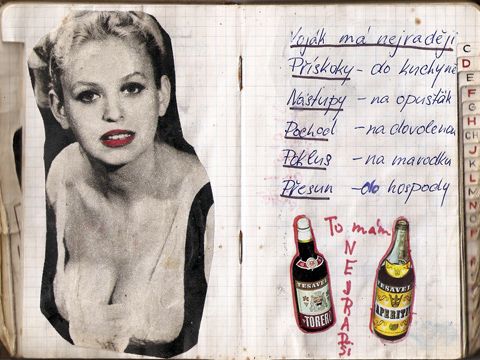 Voják má nejraději
Přískoky - do kuchyně
Nástupy - na opušťák
Pochod - na dovolenou
Poklus - na marodku
Přesun - do hospody
To mám
NEJRADŠI
TESAVEL
TORERO
TESAVEL
APERITIV
C
D
E
F
G
H
CH
J
K
L
M
N
O
P